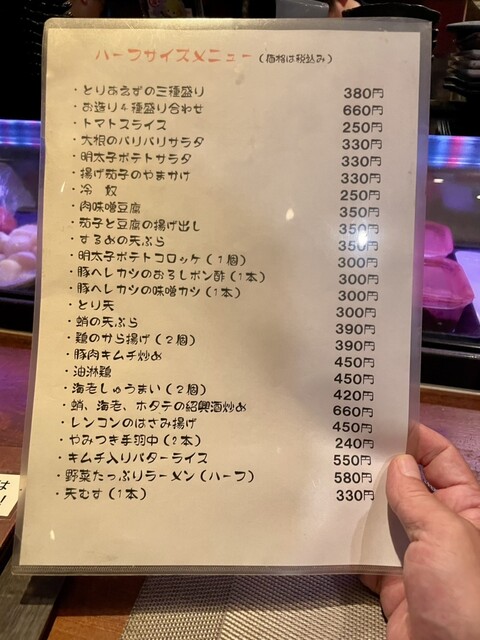 ハーフサイズメニュー(価格は税込み)
・とりあえずの三種盛り 380円
・お造り4種盛り合わせ 660円
・トマトスライス 250円
・大根のパリパリサラダ 330円
・明太子ポテトサラダ 330円
・揚げ茄子のやまかけ 330円
・冷 奴 250円
・肉味噌豆腐 350円
・茄子と豆腐の揚げ出し 350円
・するめの天ぷら 350円
・明太子ポテトコロッケ(1個) 300円
・豚ヘレカツのおろしポン酢(1本) 300円
・豚ヘレカツの味噌カツ(1本) 300円
・とり天 300円
・蛸の天ぷら 390円
・鶏のから揚げ(2個) 390円
・豚肉キムチ炒め 450円
・油淋鶏 450円
・海老しゅうまい(2個) 420円
・蛸、海老、ホタテの紹興酒炒め 660円
・レンコンのはさみ揚げ 450円
・やみつき手羽中(2本) 240円
・キムチ入りバターライス 550円
・野菜たっぷりラーメン(ハーフ) 580円
・天むす(1本) 330円
は
!